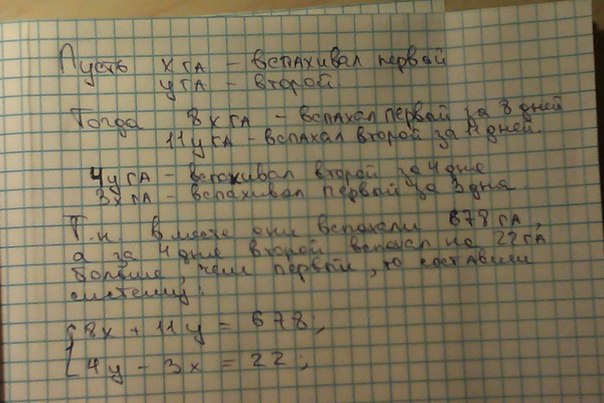 Пусть х га - вспахивал первый
у га - второй.
Тогда 8х га - вспахал первый за 8 дней
11у га - вспахал второй за 11 дней.
4у га - вспахивал второй за 4 дне
3х га - вспахивал первый за 3 дня
Т.к вместе они вспахали 678 га,
а за 4 дне второй вспахал на 22 га
больше, чем первый, то составим
систему:
8х + 11у = 678,
4у - 3х = 22;